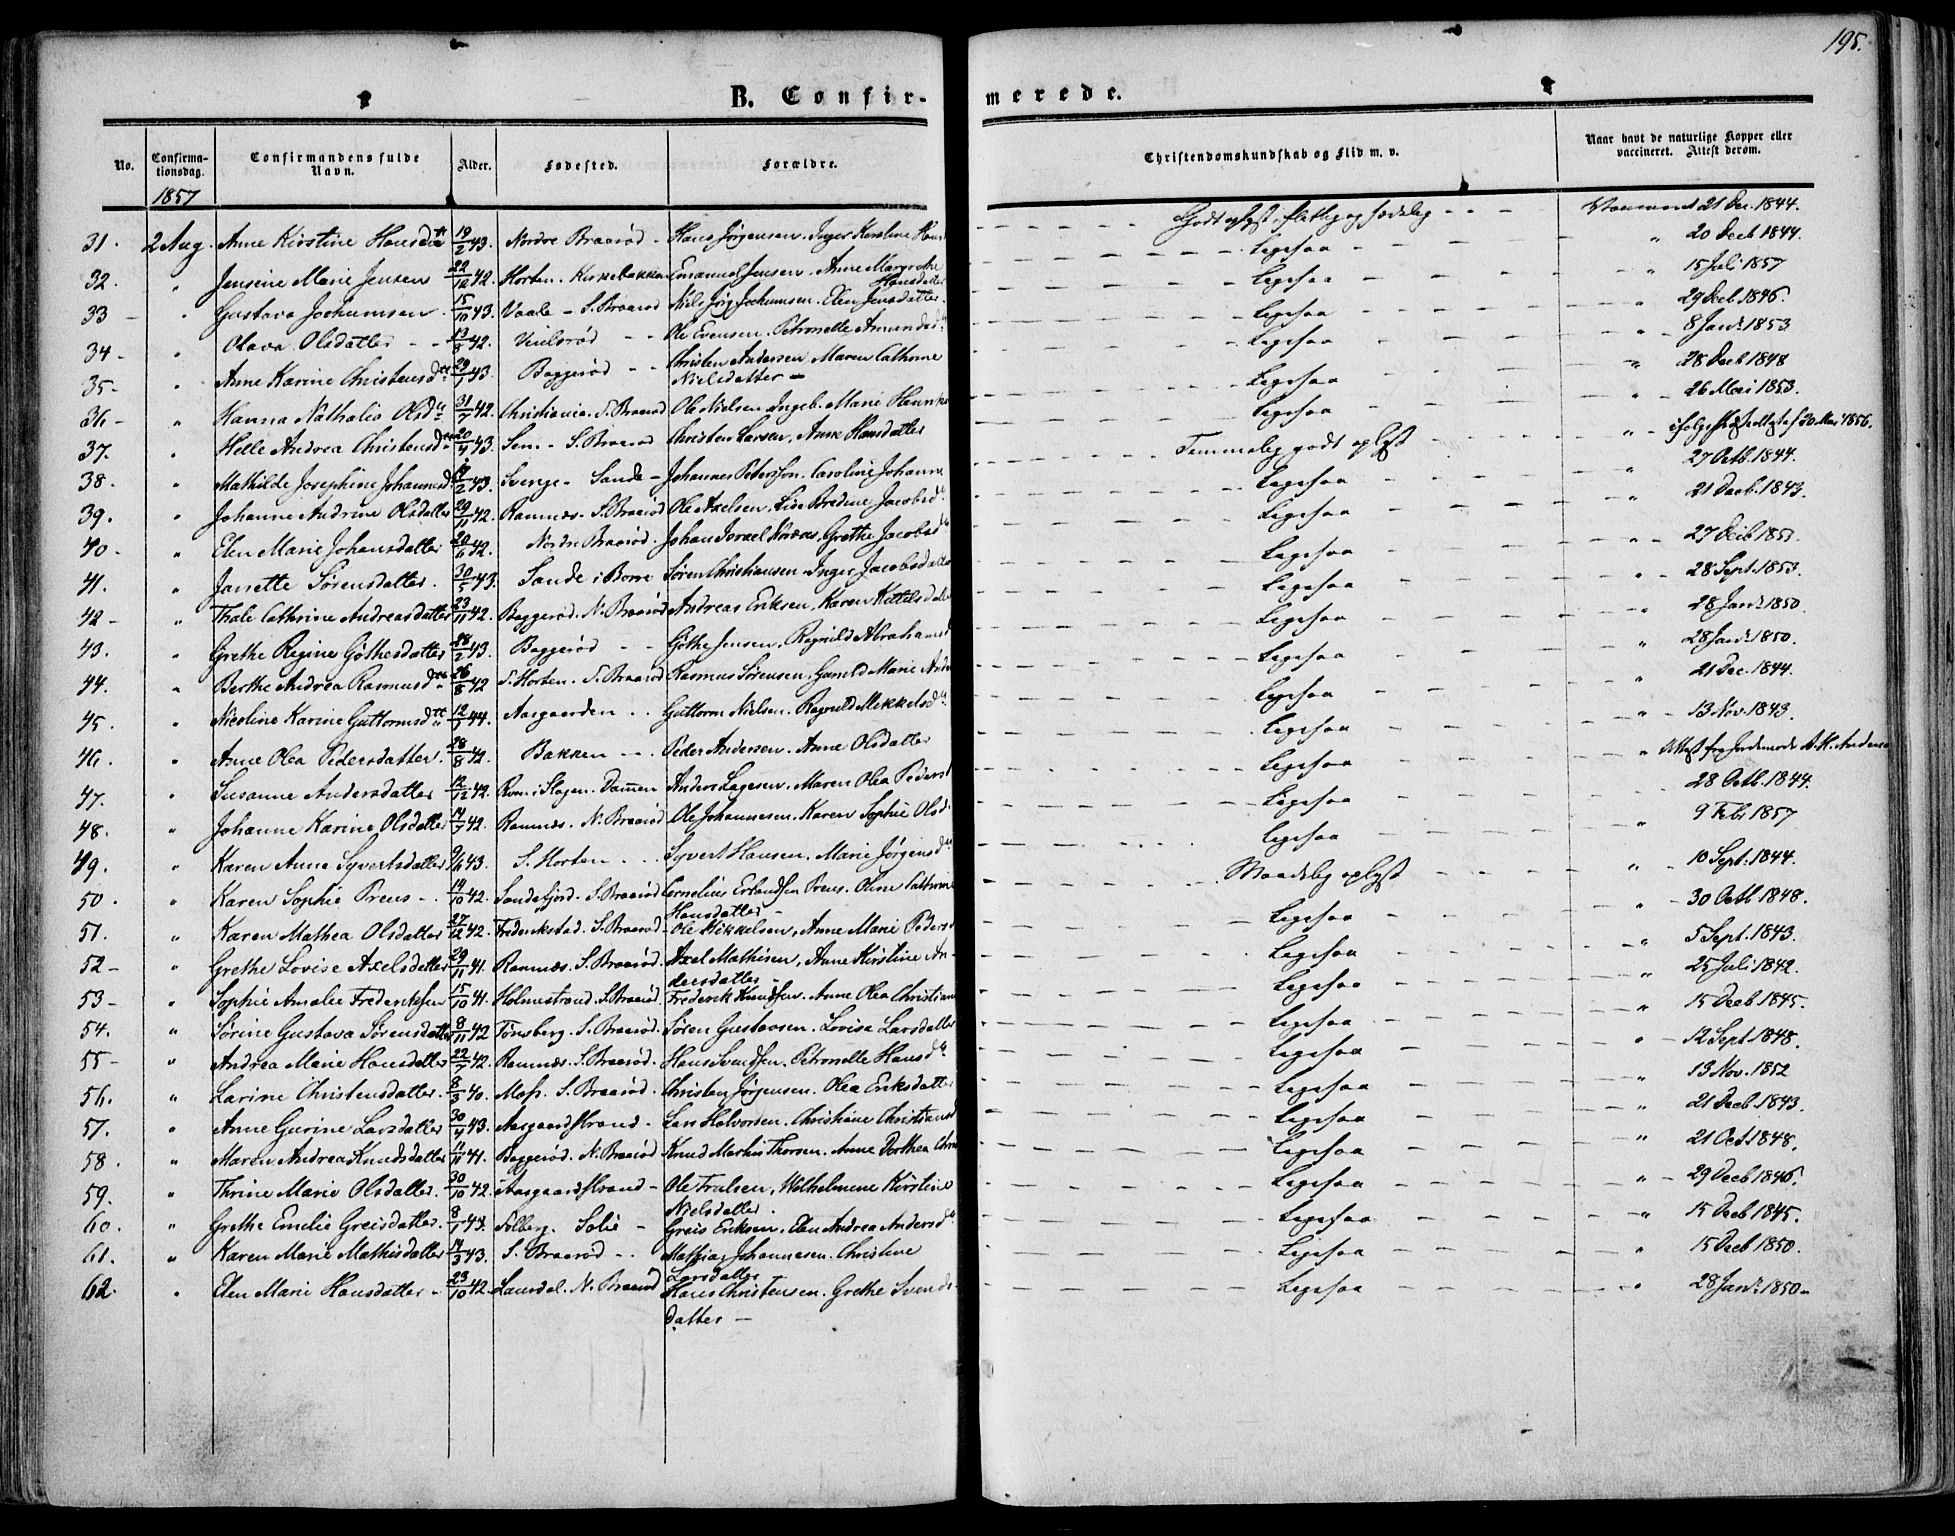 195.
B. Confirmerede.
No. Confirmationsdag. Confirmandens fulde Navn. Alder. Fødested. Forældre. Christendomskundskab og Flid m. v. Naar havt de naturlige Kopper eller vaccineret. Attest derom.
1857
31. 2 Aug. Anne Kirstine Hansdatt 19/2 43. Nordre Braarød - Hans Jørgensen. Inger Karoline Hans Godt oplyst, flittig og sædelig - - - 21 Dec. 1844.
32. " Jensine Marie Jensen 22/12 42. Horten. Kirkebakken Emanuel Jensen. Anne Margrethe Hansdatter Ligesaa " 20 Decb 1844.
33 - " Gustava Jochumsen. 15/10 43. Vaale - S. Braarød Niels Jørg. Jochumsen. Elen Jensdatter. Ligesaa " 15 Juli 1857
34 - " Olava Olsdatter - - 13/8 42. - - Ole Evensen. Petronelle Amundsd. Ligesaa " 29 Decb 1846.
35 - " Anne Karine Christensdtt 29/1 43. Baggerød - - Christen Andersen. Maren Cathrine Nielsdatter - Ligesaa " 8 Jan. 1853
36 - " Hanna Nathalia Olsd. 31/7 42. Christiania. S. Braarød Ole Nielsen. Ingeb. Marie Ligesaa " 28 Decb 1848
37. " Helle Andrea Christensdtt 20/4 43. Sem - S. Braarød Christen Larsen. Anne Hansdatter Ligesaa " 26 Mai 1853.
38. " Mathilde Josephine Johannesd. /2 43. Svenge - Sande - Johannes Petersson. Caroline Johanne Temmelig godt oplyst " 1856.
39. " Johanne Andrine Olsdatter 29/11 42. Ramnes. S. Braarød Ole Axelsen. Lise Bredine Jacobsd. Ligesaa " 27 Octb. 1844.
40 - " Elen Marie Johansdatter 20/6 42. Nordre Braarød. Johan Israel Grethe Jacobsd. Ligesaa " 21 Decb. 1843.
41. " Janette Sørensdatter. 30/5 43. Sande i Borre Søren Christiansen. Inger Jacobsdatter Ligesaa " 27 Decb 1851.
42 - " Thale Cathrine Andreasdatter 23/11 42. Baggerød. N. Braarød Andreas Eriksen. Karen Kittilsdatter Ligesaa " 28 Sept. 1853.
43. " Grethe Regine Göthesdatter 28/2 43. Baggerød - - Göthe Jensen. Ragnild Abrahamsd Ligesaa " 28 Jan. 1850.
44. " Berthe Andrea Rasmusdtt 26/8 42 S. Horten. S. Braarød Rasmus Sørensen. Gunild Marie Ande Ligesaa " 28 Jan. 1850.
45. " Nicoline Karine Guttormsdtt 12/1 44. Aasgaarden - - Guttorm Nielsen. Ragnild Mikkelsd. Ligesaa " 21 Dec. 1844.
46. " Anne Olea Pedersdatter. 28/8 42. Bakken - - Peder Andersen. Anne Olsdatter Ligesaa " 13 Nov. 1843.
47. " Susanne Andersdatter 12/12 42. i Slagen. Dammen Anders Lagesen. Maren Olea Pedersd Ligesaa " Attest fra Jordemoder A. H. Anderse
48. " Johanne Karine Olsdatter 14/7 42. Ramnes. N. Braarød Ole Johannesen. Karen Sophie Olsd. Ligesaa 28 Octb. 1844.
49. " Karen Anne Syvertsdatter 9/6 43. S. Horten - - Syvert Hansen. Marie Jørgensd. Ligesaa " 9 Feb. 1857
50. " Karen Sophie Preus - . 14/10 42. Sandefjord. S. Braarød Cornelius Erlandsen Preus. Oline Cathrine Hansdatter - Maadelig oplyst " 10 Sept. 1844.
51. " Karen Mathea Olsdatter 27/12 42. Frederikstad. S. Braarød - Ole Mikkelsen. Anne Marie Pedersd Ligesaa " 30 Octb 1848.
52 - " Grethe Lovise Axelsdatter 29/11 41. Ramnes. S. Braarød. Axel Mathisen. Anne Kirstine Andersdatter - Ligesaa " 5 Sept. 1843.
53 - " Sophie Amalie Frederiksen 15/10 41. Holmestrand. S. Braarød. Frederik Knudsen. Anne Olea Christian Ligesaa " 25 Juli 1842.
54. " Sørine Gustava Sørensdatter 8/11 42 Tønsberg. S. Braarød. Søren Gustavsen. Lovise Larsdatter Ligesaa " 15 Decb 1845.
55 - " Andrea Marie Hansdatter. 22/7 42. Ramnes. S. Braarød. Hans Svendsen. Petronelle Hansd. Ligesaa " 12 Sept 1848.
56. " Larine Christensdatter. 8/3 40. Moss. S. Braarød. Christen Jørgensen. Olea Eriksdatter Ligesaa " 13 Nov. 1852
57. " Anne Gurine Larsdatter 30/4 43. Aasgaardstrand. Lars Halvorsen. Christiane Christiansd Ligesaa " 21 Decb. 1843.
58. " Maren Andrea Knudsdatter /11 41. Baggerød. N. Braarød Knud Martin Thorsen. Anne Dorthea Chri Ligesaa " 21 Oct 1848.
59. " Thrine Marie Olsdatter. 30/10 42. Aasgaardstrand - Ole Trulsen. Wilhelmine Kirstine Nielsdatter. Ligesaa " 29 Decb 1846.
60. " Grethe Emelie Greisdatter. 8/1 43. Solberg. Solie - Greis Eriksen. Elen Andrea Andersd. Ligesaa " 15 Decb 1845.
61. " Karen Marie Mathisdatter 14/3 43. S. Braarød - - Mathias Johannesen. Christine Larsdatter Ligesaa " 15 Decb 1850.
62. " Elen Marie Hansdatter - 23/10 42. N. Braarød Hans Christensen. Grethe Svendsdatter - Ligesaa " 28 Jan. 1850 -